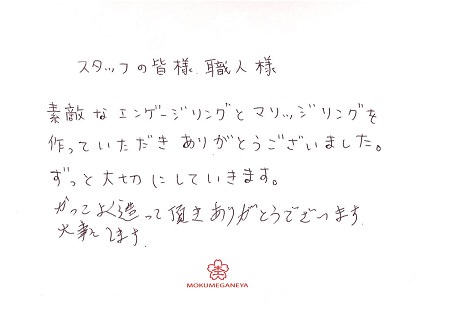 スタッフの皆様、職人様
素敵なエンゲージリングとマリッジリングを
作っていただきありがとうございました。
ずっと大切にしていきます。
かっこよく造って頂きありがとうございます
大事にします.
MOKUMEGANEYA